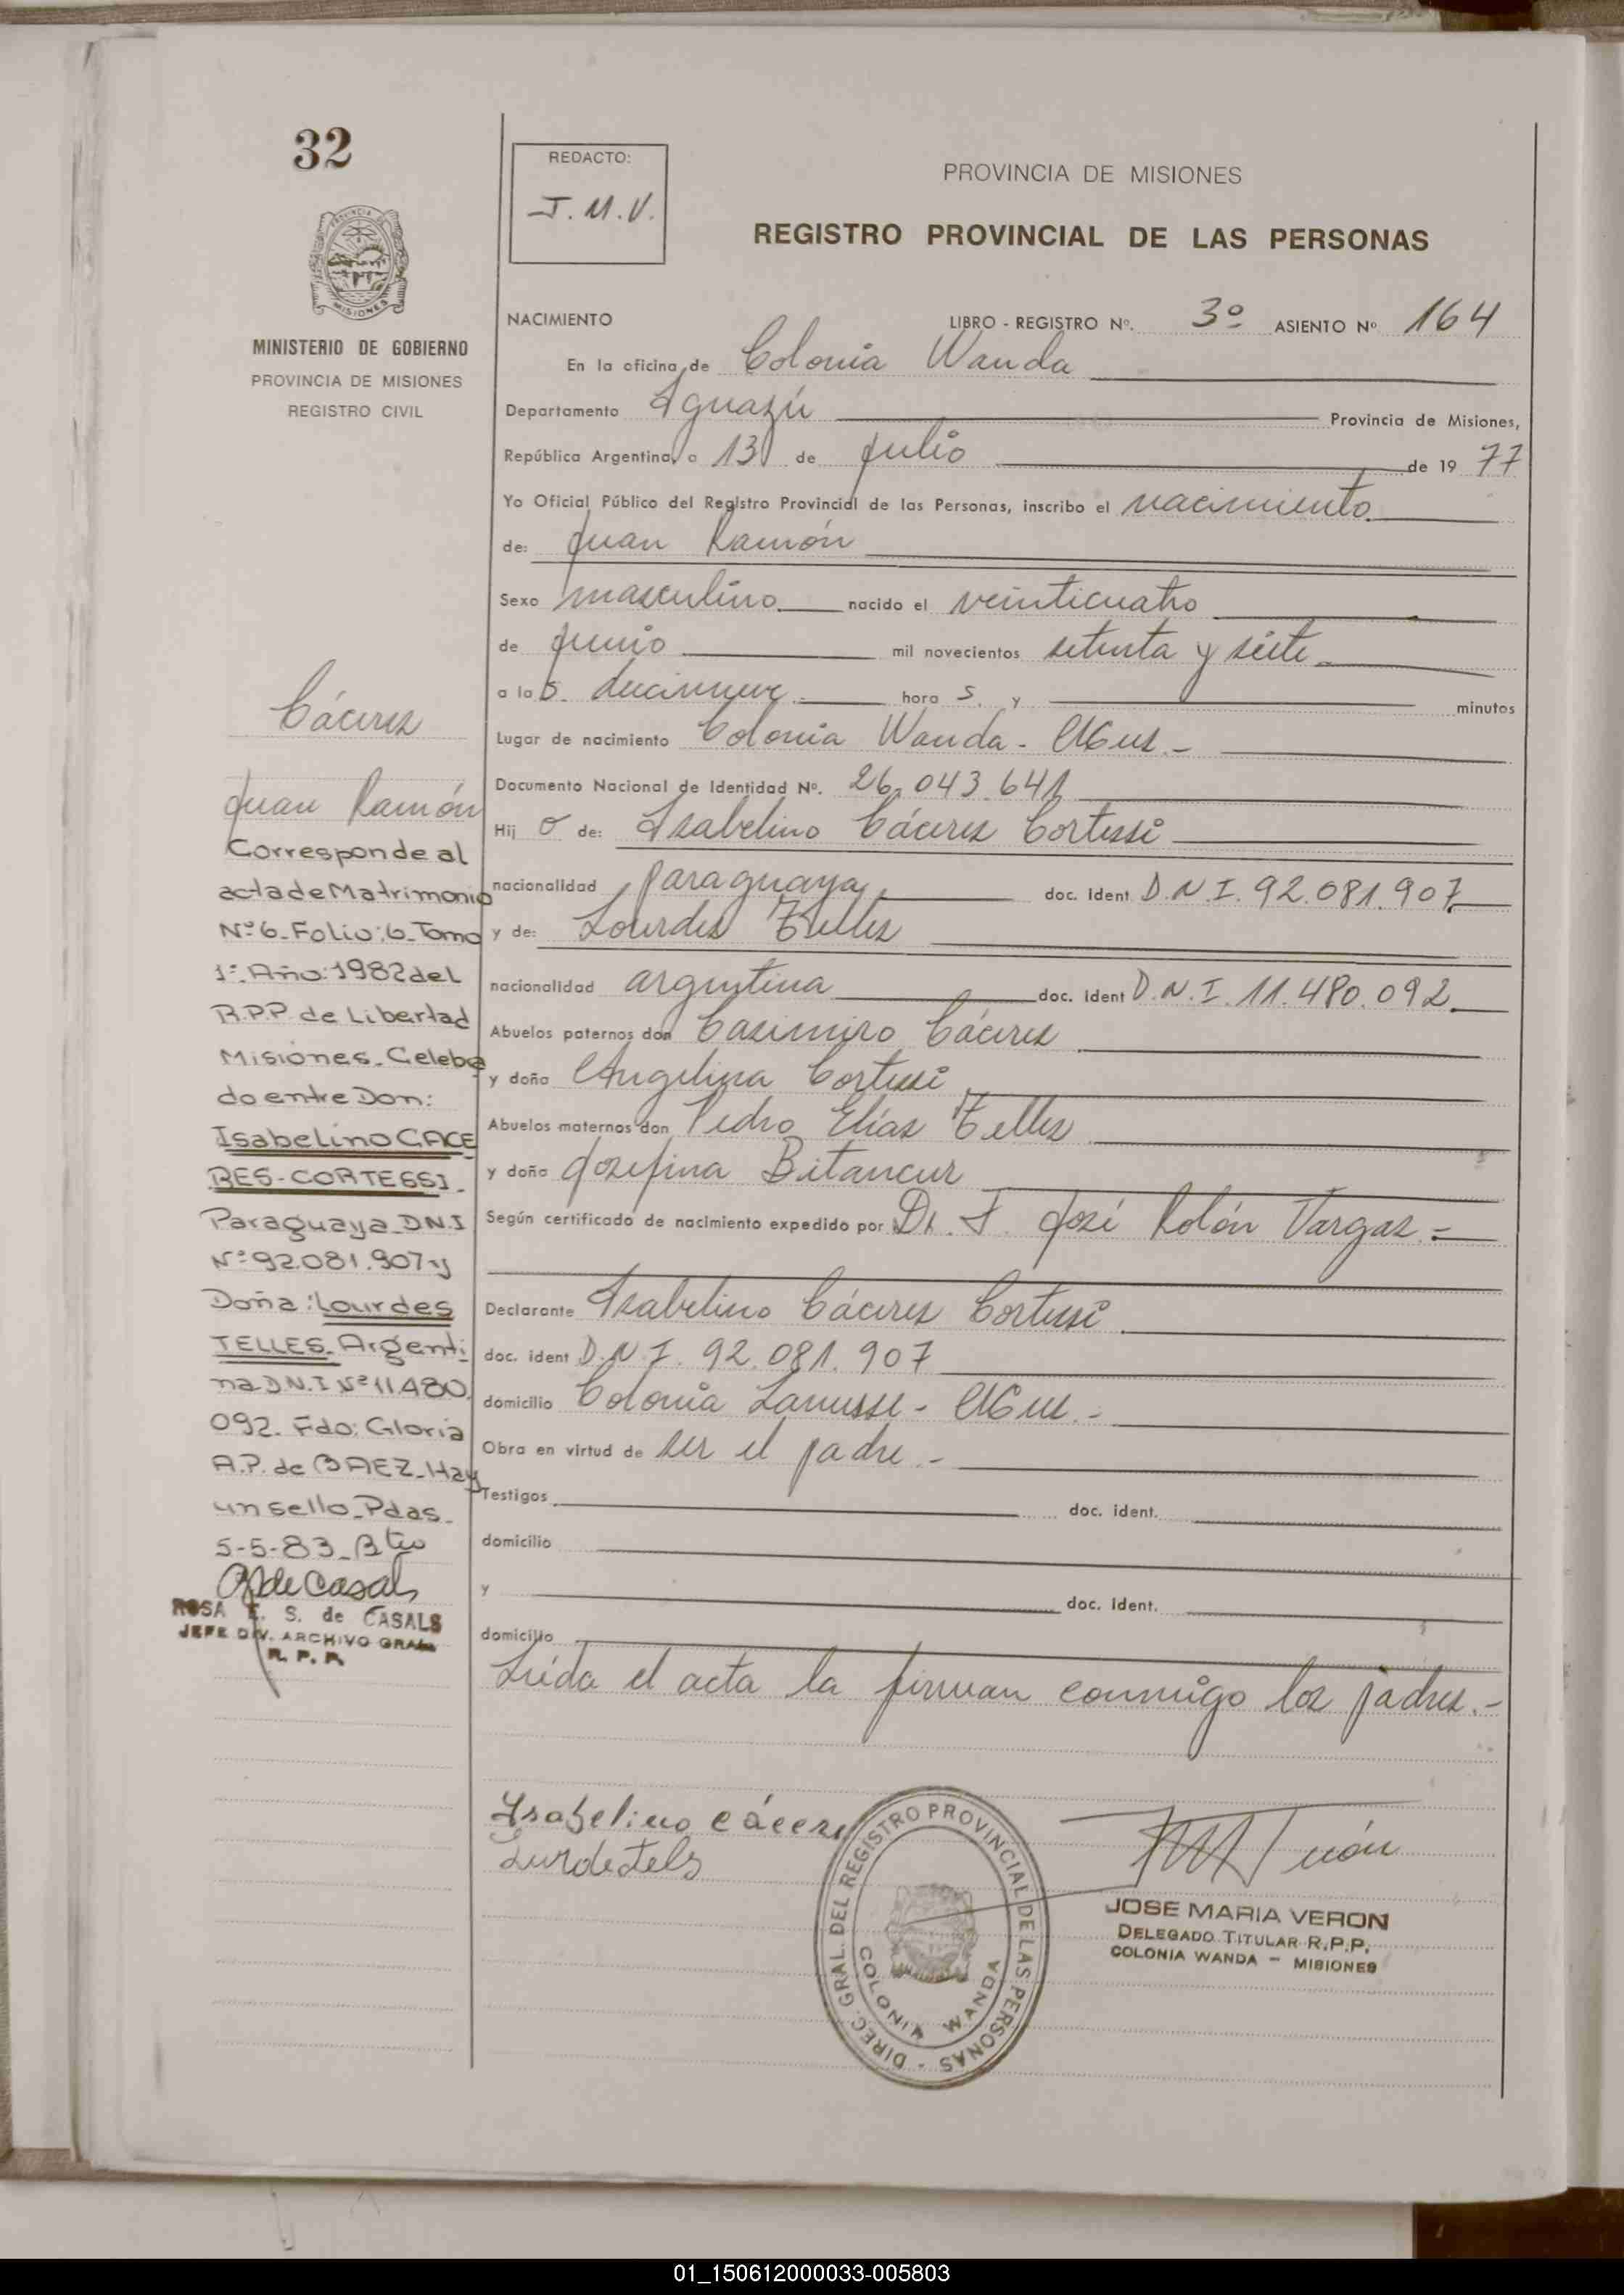 32
REDACTO:
J. M. V.
PROVINCIA DE MISIONES
REGISTRO PROVINCIAL DE LAS PERSONAS
PROVINCIA DE
MISIONES
MINISTERIO DE GOBIERNO
PROVINCIA DE MISIONES
REGISTRO CIVIL
NACIMIENTO LIBRO - REGISTRO Nº. 3º ASIENTO Nº 164
En la oficina de Colonia Wanda
Departamento Iguazú Provincia de Misiones,
República Argentina, a 13 de julio de 19 77
Yo Oficial Público del Registro Provincial de las Personas, inscribo el nacimiento
de: Juan Ramón
Sexo masculino nacido el veinticuatro
de junio mil novecientos setenta y siete
a las diecinueve hora s. y minutos
Lugar de nacimiento Colonia Wanda - Mnes.-
Documento Nacional de Identidad Nº. 26.043.641
Hij o de: Isabelino Cáceres Cortessi
nacionalidad paraguaya doc. ident D.N.I. 92.081.907
y de: Lourdes Telles
nacionalidad argentina doc. ident D.N.I. 11.480.092
Abuelos paternos don Casimiro Cáceres
y doña Angelina Cortessi
Abuelos maternos don Pedro Elías Telles
y doña Josefina Bitancur
Según certificado de nacimiento expedido por Dr. F. José Rolón Vargas.-
Declarante Isabelino Cáceres Cortessi
doc. ident D.N.I. 92.081.907
domicilio Colonia Lanusse - Mnes.-
Obra en virtud de ser el padre.-
Testigos doc. ident.
domicilio
y doc. ident.
domicilio
Leída el acta la firman conmigo los padres.-
Cáceres
Juan Ramón
Corresponde al
acta de Matrimonio
Nº 6. Folio: 6. Tomo
1º. Año: 1982 del
R.P.P. de Libertad
Misiones. Celebra
do entre Don:
Isabelino CACE
RES-CORTESSI.
Paraguaya D.N.I
Nº 92.081.907 y
Doña: Lourdes
TELLES. Argenti
na D.N.I Nº 11.480.
092. Fdo: Gloria
A.P. de BAEZ. Hay
un sello. Pdas.
5-5-83.
de Casals
ROSA E. S. de CASALS
JEFE DIV. ARCHIVO GRAL.
R. P. P.
Isabelino cácere
Lurdetels
DIREC. GRAL. DEL REGISTRO PROVINCIAL DE LAS PERSONAS -
COLONIA WANDA
JOSE MARIA VERON
DELEGADO TITULAR R.P.P.
COLONIA WANDA - MISIONES
01_150612000033-005803